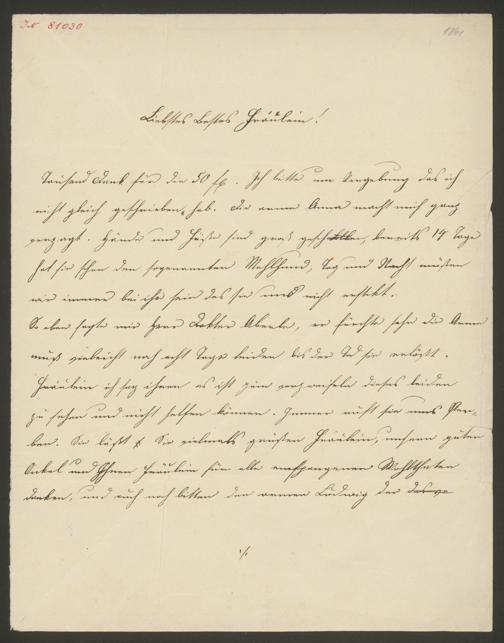 IN 81030
1861
Liebstes bestes Fräulein!
Tausend Dank für die 50 fl. Ich bitte um Vergebung das ich
nicht gleich geschrieben hab. Die arme Anna macht mich ganz
verzagt. Hände und Füße sind ganz, bereits 14 Tage
hat sie schon den sogenannten Mehlhund, Tag und Nacht müßen
wir immer bei ihr sein das sie uns nicht erstikt.
So eben sagte mir Herr Doktor Aberle, er fürchte sehr die Anna
muß vieleicht noch acht Tage leiden bis der Tod sie erlößt.
Fräulein ich sag ihnen es ist zum verzweifeln dieses leiden
zu sehen und nicht helfen können. Immer sie uns Ster-
ben. Sie läßt Sie vielmals grüßen Fräulein, unserm guten
Onkel und Ihnen Fräulein für alle empfangenen Wohlthaten
danken, und euch noch bitten den armen Ludwig der
·/.